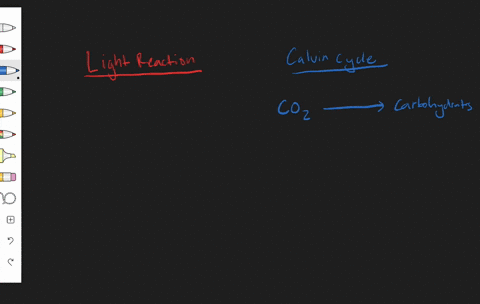 Light Reaction
Calvin Cycle
CO₂ → Carbohydrates